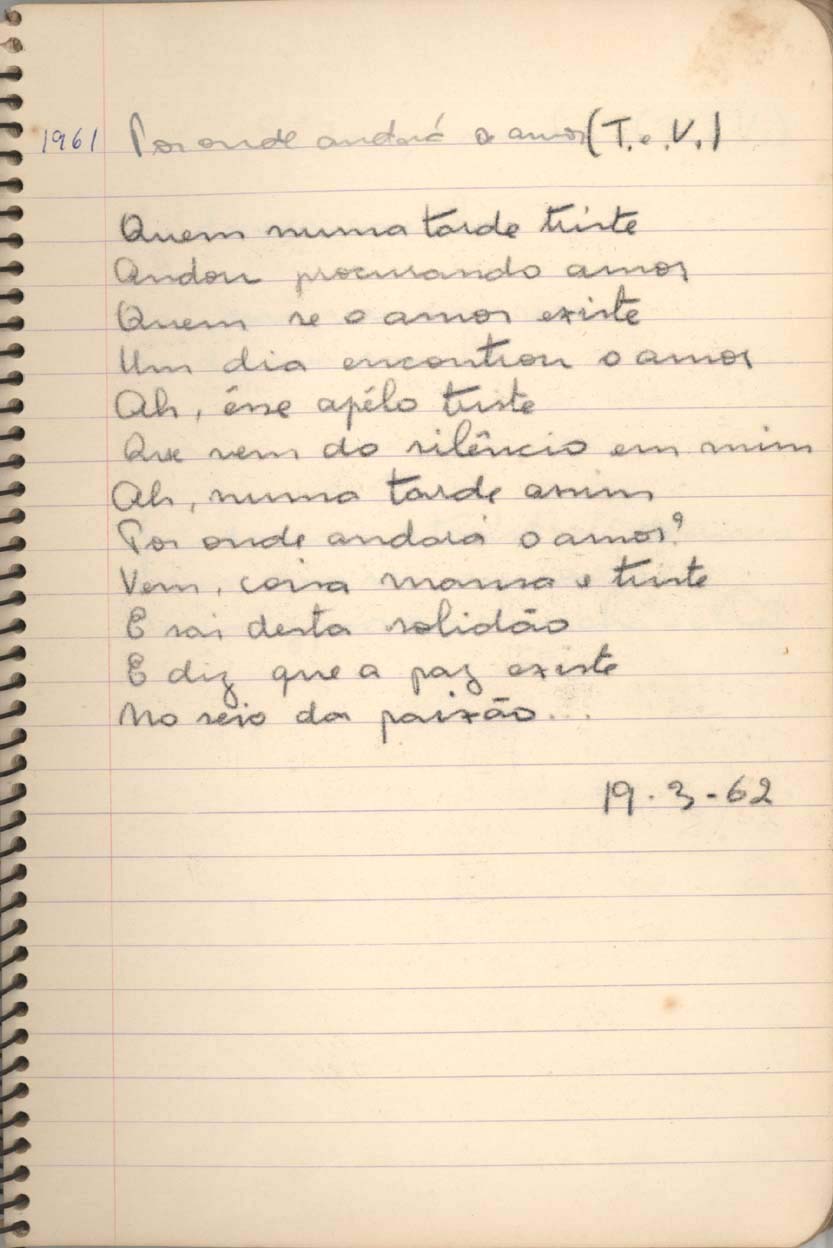 1961 Por onde andará o amor (T. e. V.)
Quem numa tarde triste
Andou procurando amor
Quem se o amor existe
Um dia encontrou o amor
Ah, êsse apêlo triste
Que vem do silêncio em mim
Ah, numa tarde assim
Por onde andará o amor?
Vem, coisa mansa e triste
E sai desta solidão
E diz que a paz existe
No seio da paixão...
19.3-62